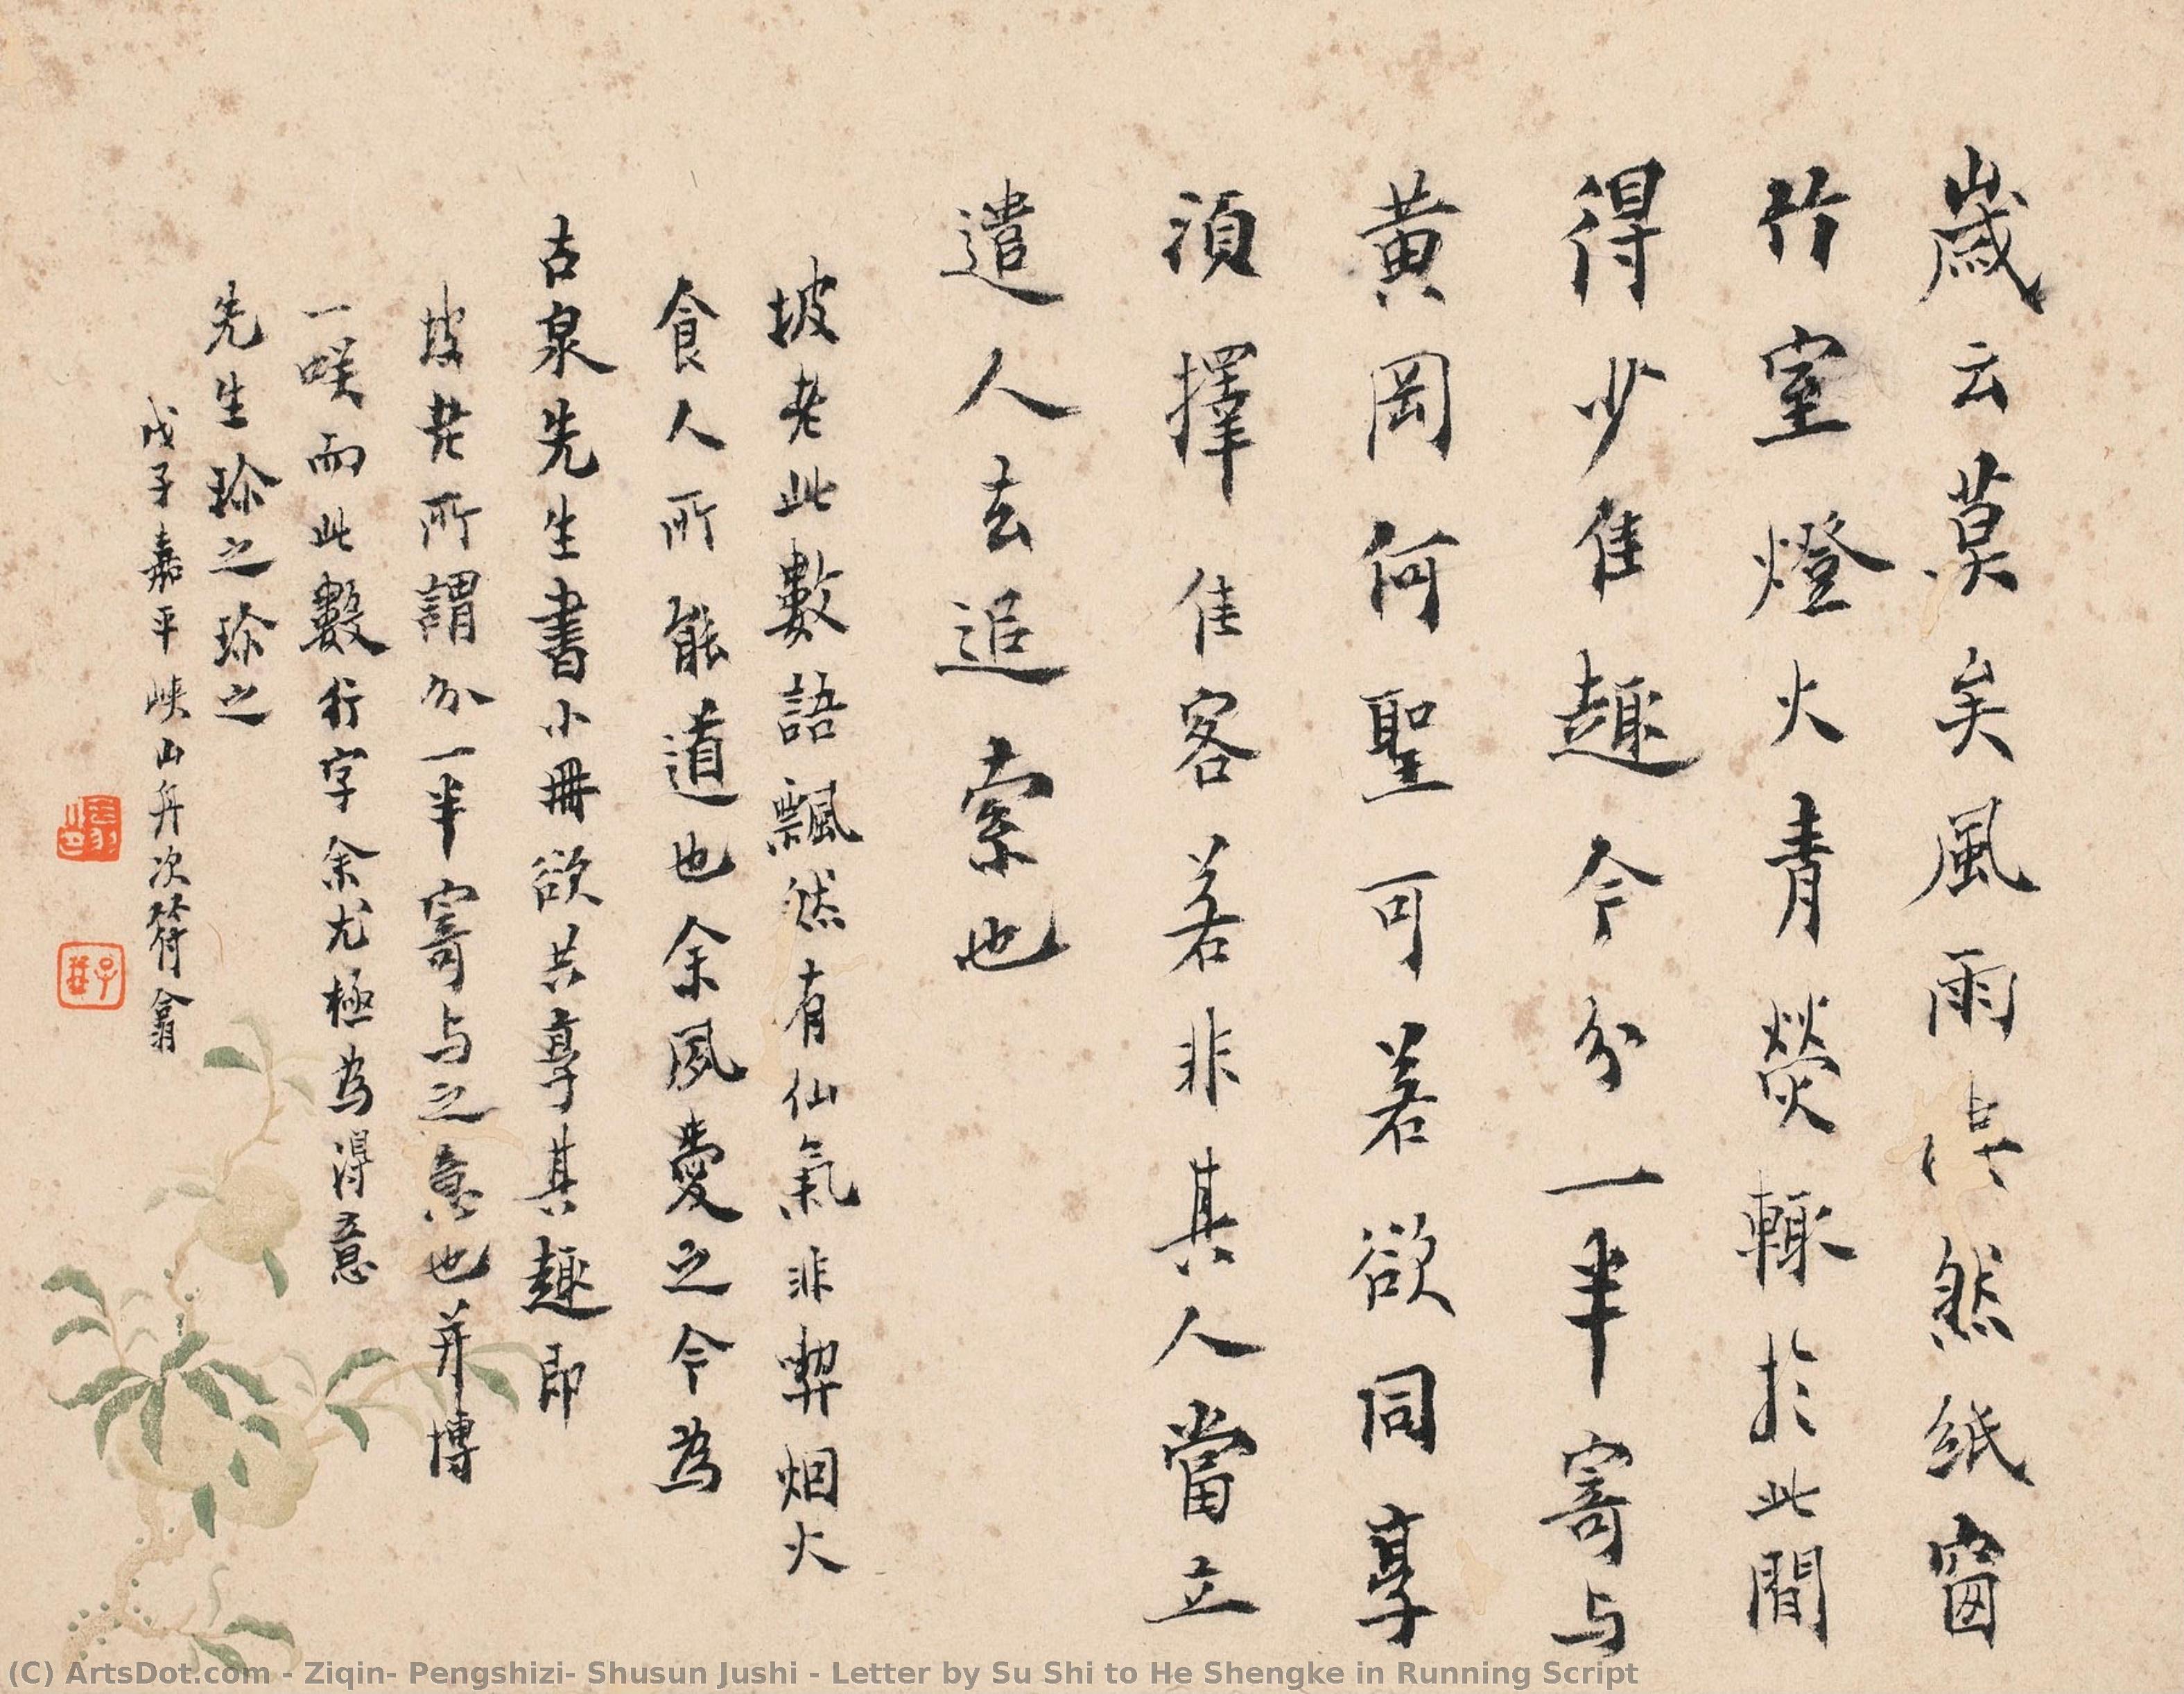 歲云莫矣風雨淒然紙窗
竹室燈火青熒輒於此間
得少佳趣今分一半寄与
黃岡何聖可若欲同享
須擇佳客若非其人當立
遣人去追索也
坡老此數語飄然有仙氣非喫烟火
食人所能道也余夙愛之今為
古泉先生書小冊欲共享其趣即
坡老所謂分一半寄与之意也并博
一咲而此數行字余尤極為得意
先生珍之珍之
戊子嘉平峽山舟次符翕
(C) ArtsDot.com - Ziqin- Pengshizi- Shusun Jushi - Letter by Su Shi to He Shengke in Running Script